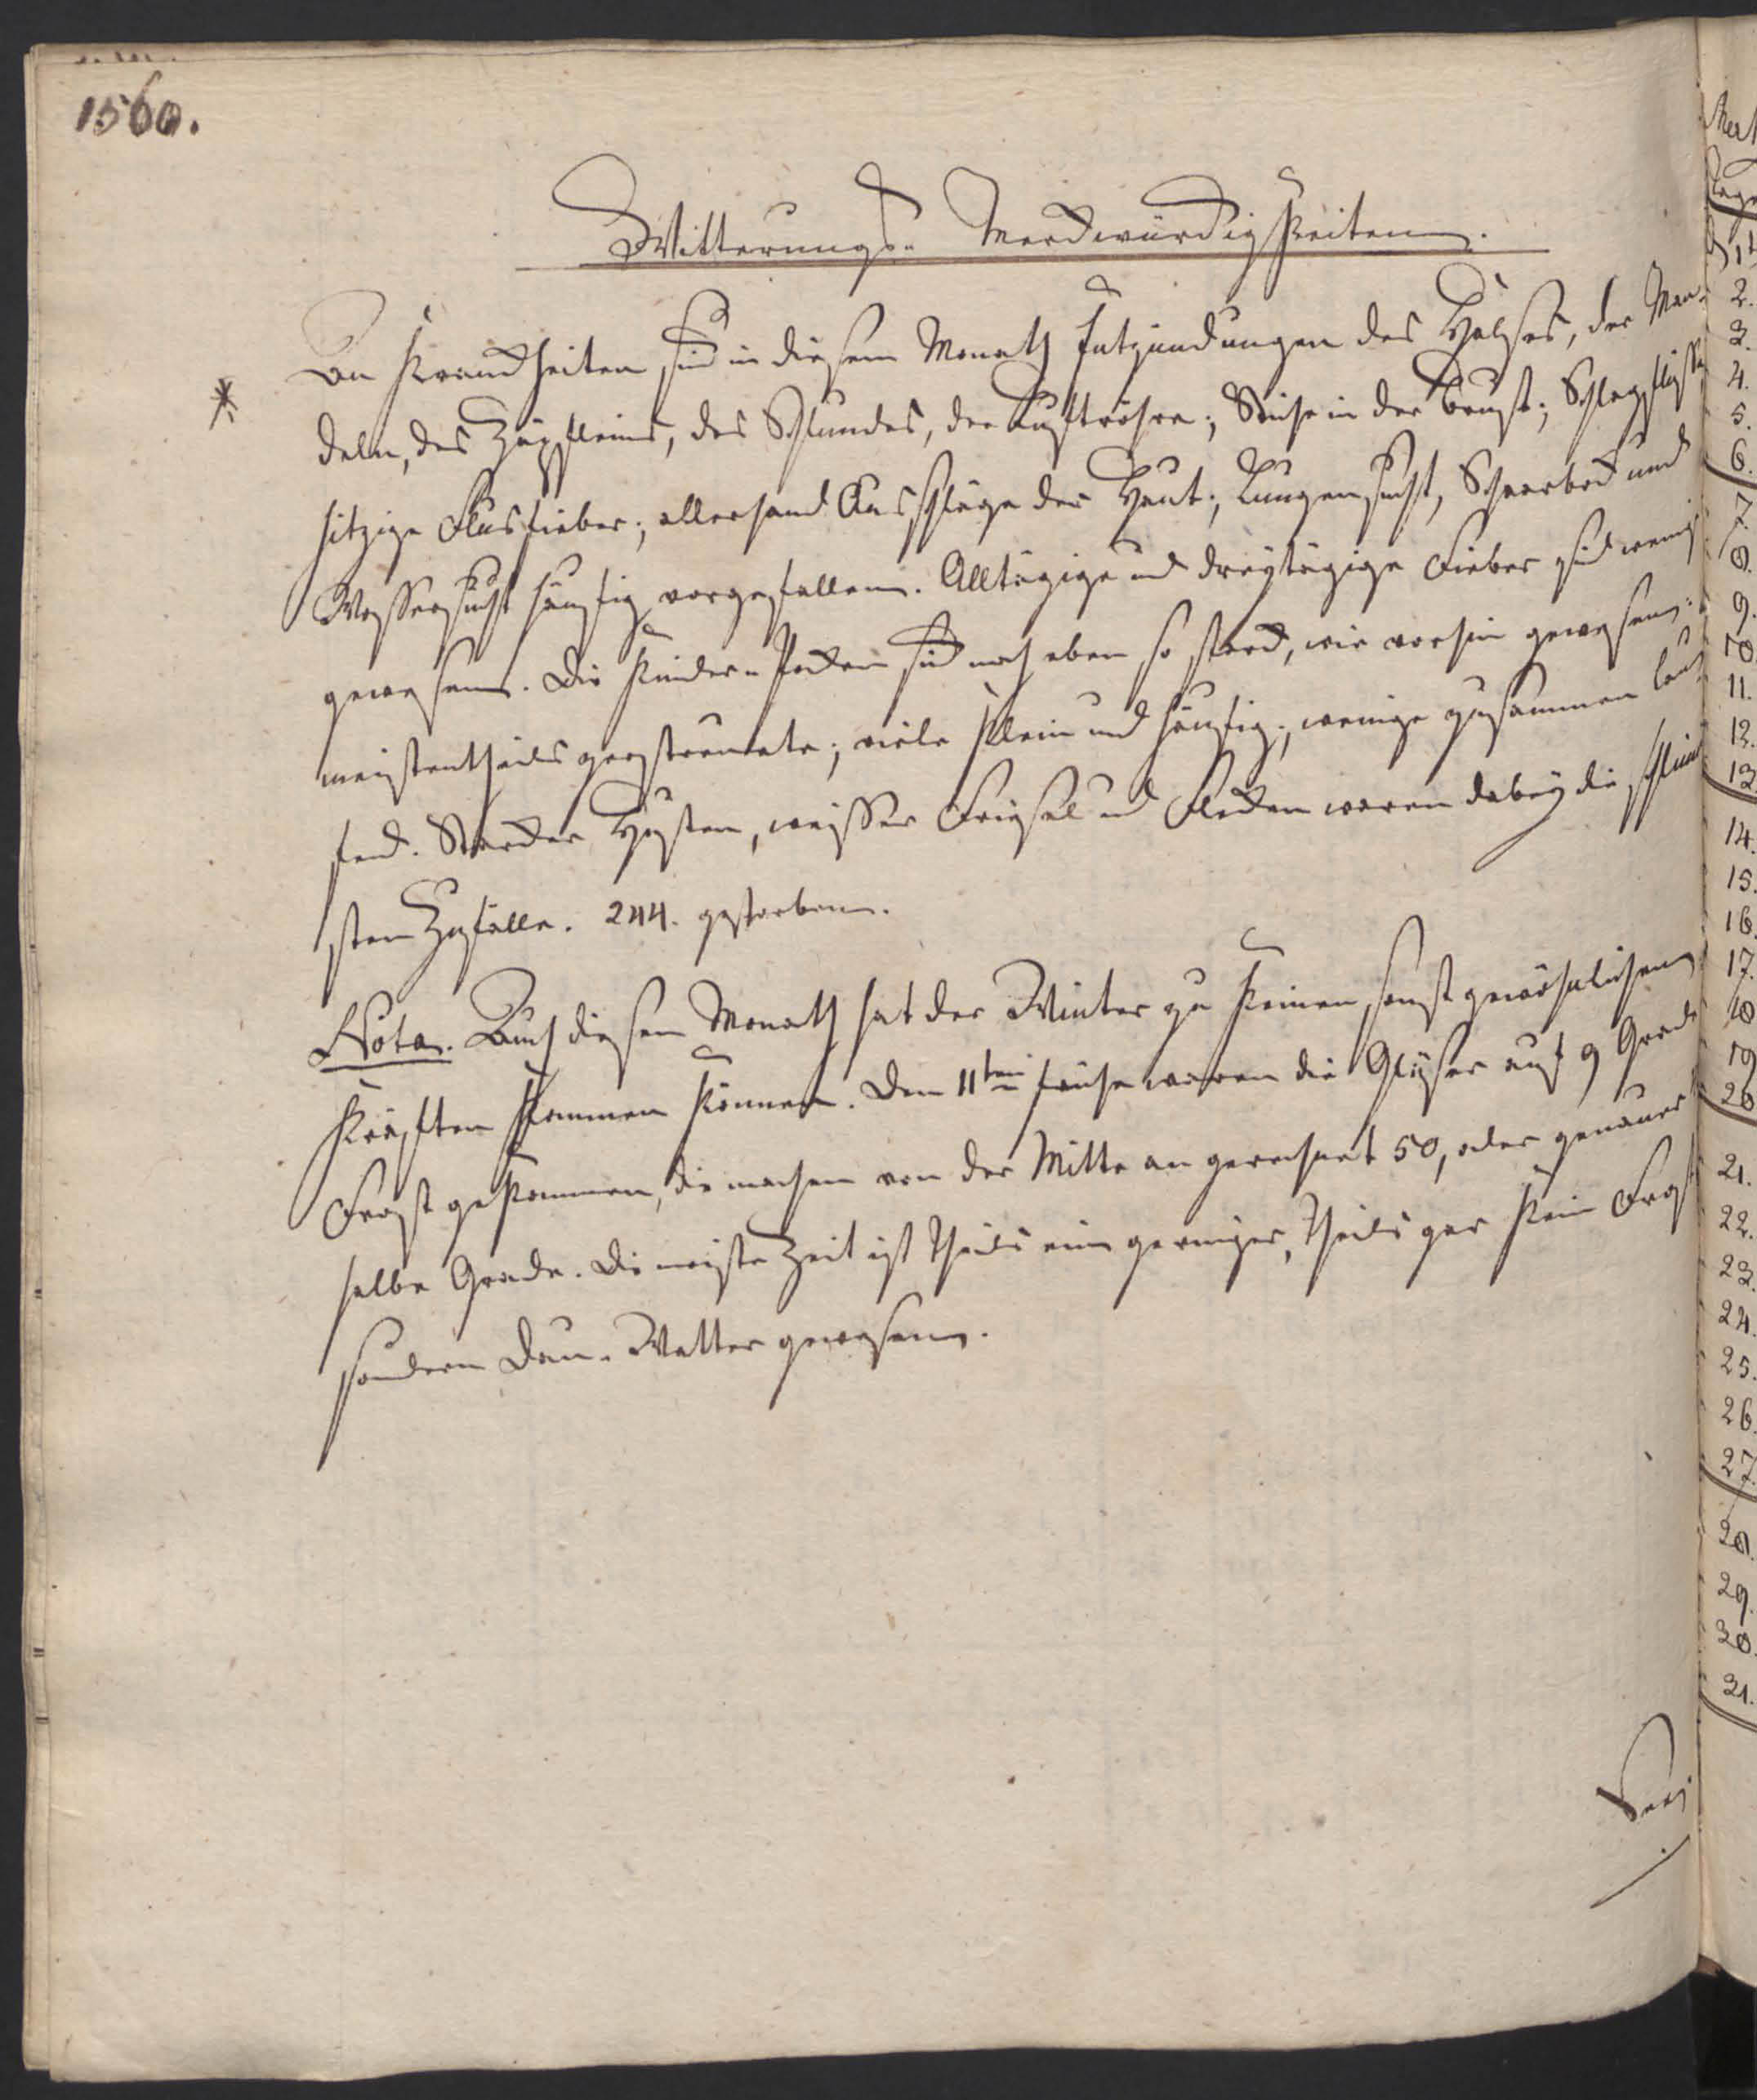 1560.
Witterungs- Merckwürdigkeiten.
* An Kranckheiten sind in diesem Monath Entzündungen des Halses, der Man-
deln, des Zäpfleins, des Schlundes, der Luftröhre; Stiche in der Brust; Schlagflüsse
hitzige Flusfieber; allerhand Ausschläge der Haut; Lungensucht, Scharbock und
Wassersucht häufig vorgefallen. Alltägige und dreytägige Fieber sind wenig
gewesen. Die Kinder-Pocken sind noch eben so starck, wie vorhin gewesen:
meistentheils zerstreuete; viele klein und häufig; wenige zusammen lauf-
fend. Starcker Husten, weisser Friesel und Flecken waren dabey die schlim-
sten Zufälle. 244. gestorben.
Nota. Auch diesen Monath hat der Winter zu keinen sonst gewöhnlichen
Kräfften kommen können. Den 11ten frühe waren die Gläser auf 9 Grade
Frost gekommen, die machen von der Mitte an gerechnet 50, oder genauer
halbe Grade. Die meiste Zeit ist theils ein geringer, theils gar kein Frost
sondern Dau-Wetter gewesen.
1
2.
3.
4.
5.
6.
7.
8.
9.
10
11.
12.
13
14.
15.
16.
17.
18
19
20
21.
22.
23.
24.
25.
26.
27.
28.
29.
30.
31.